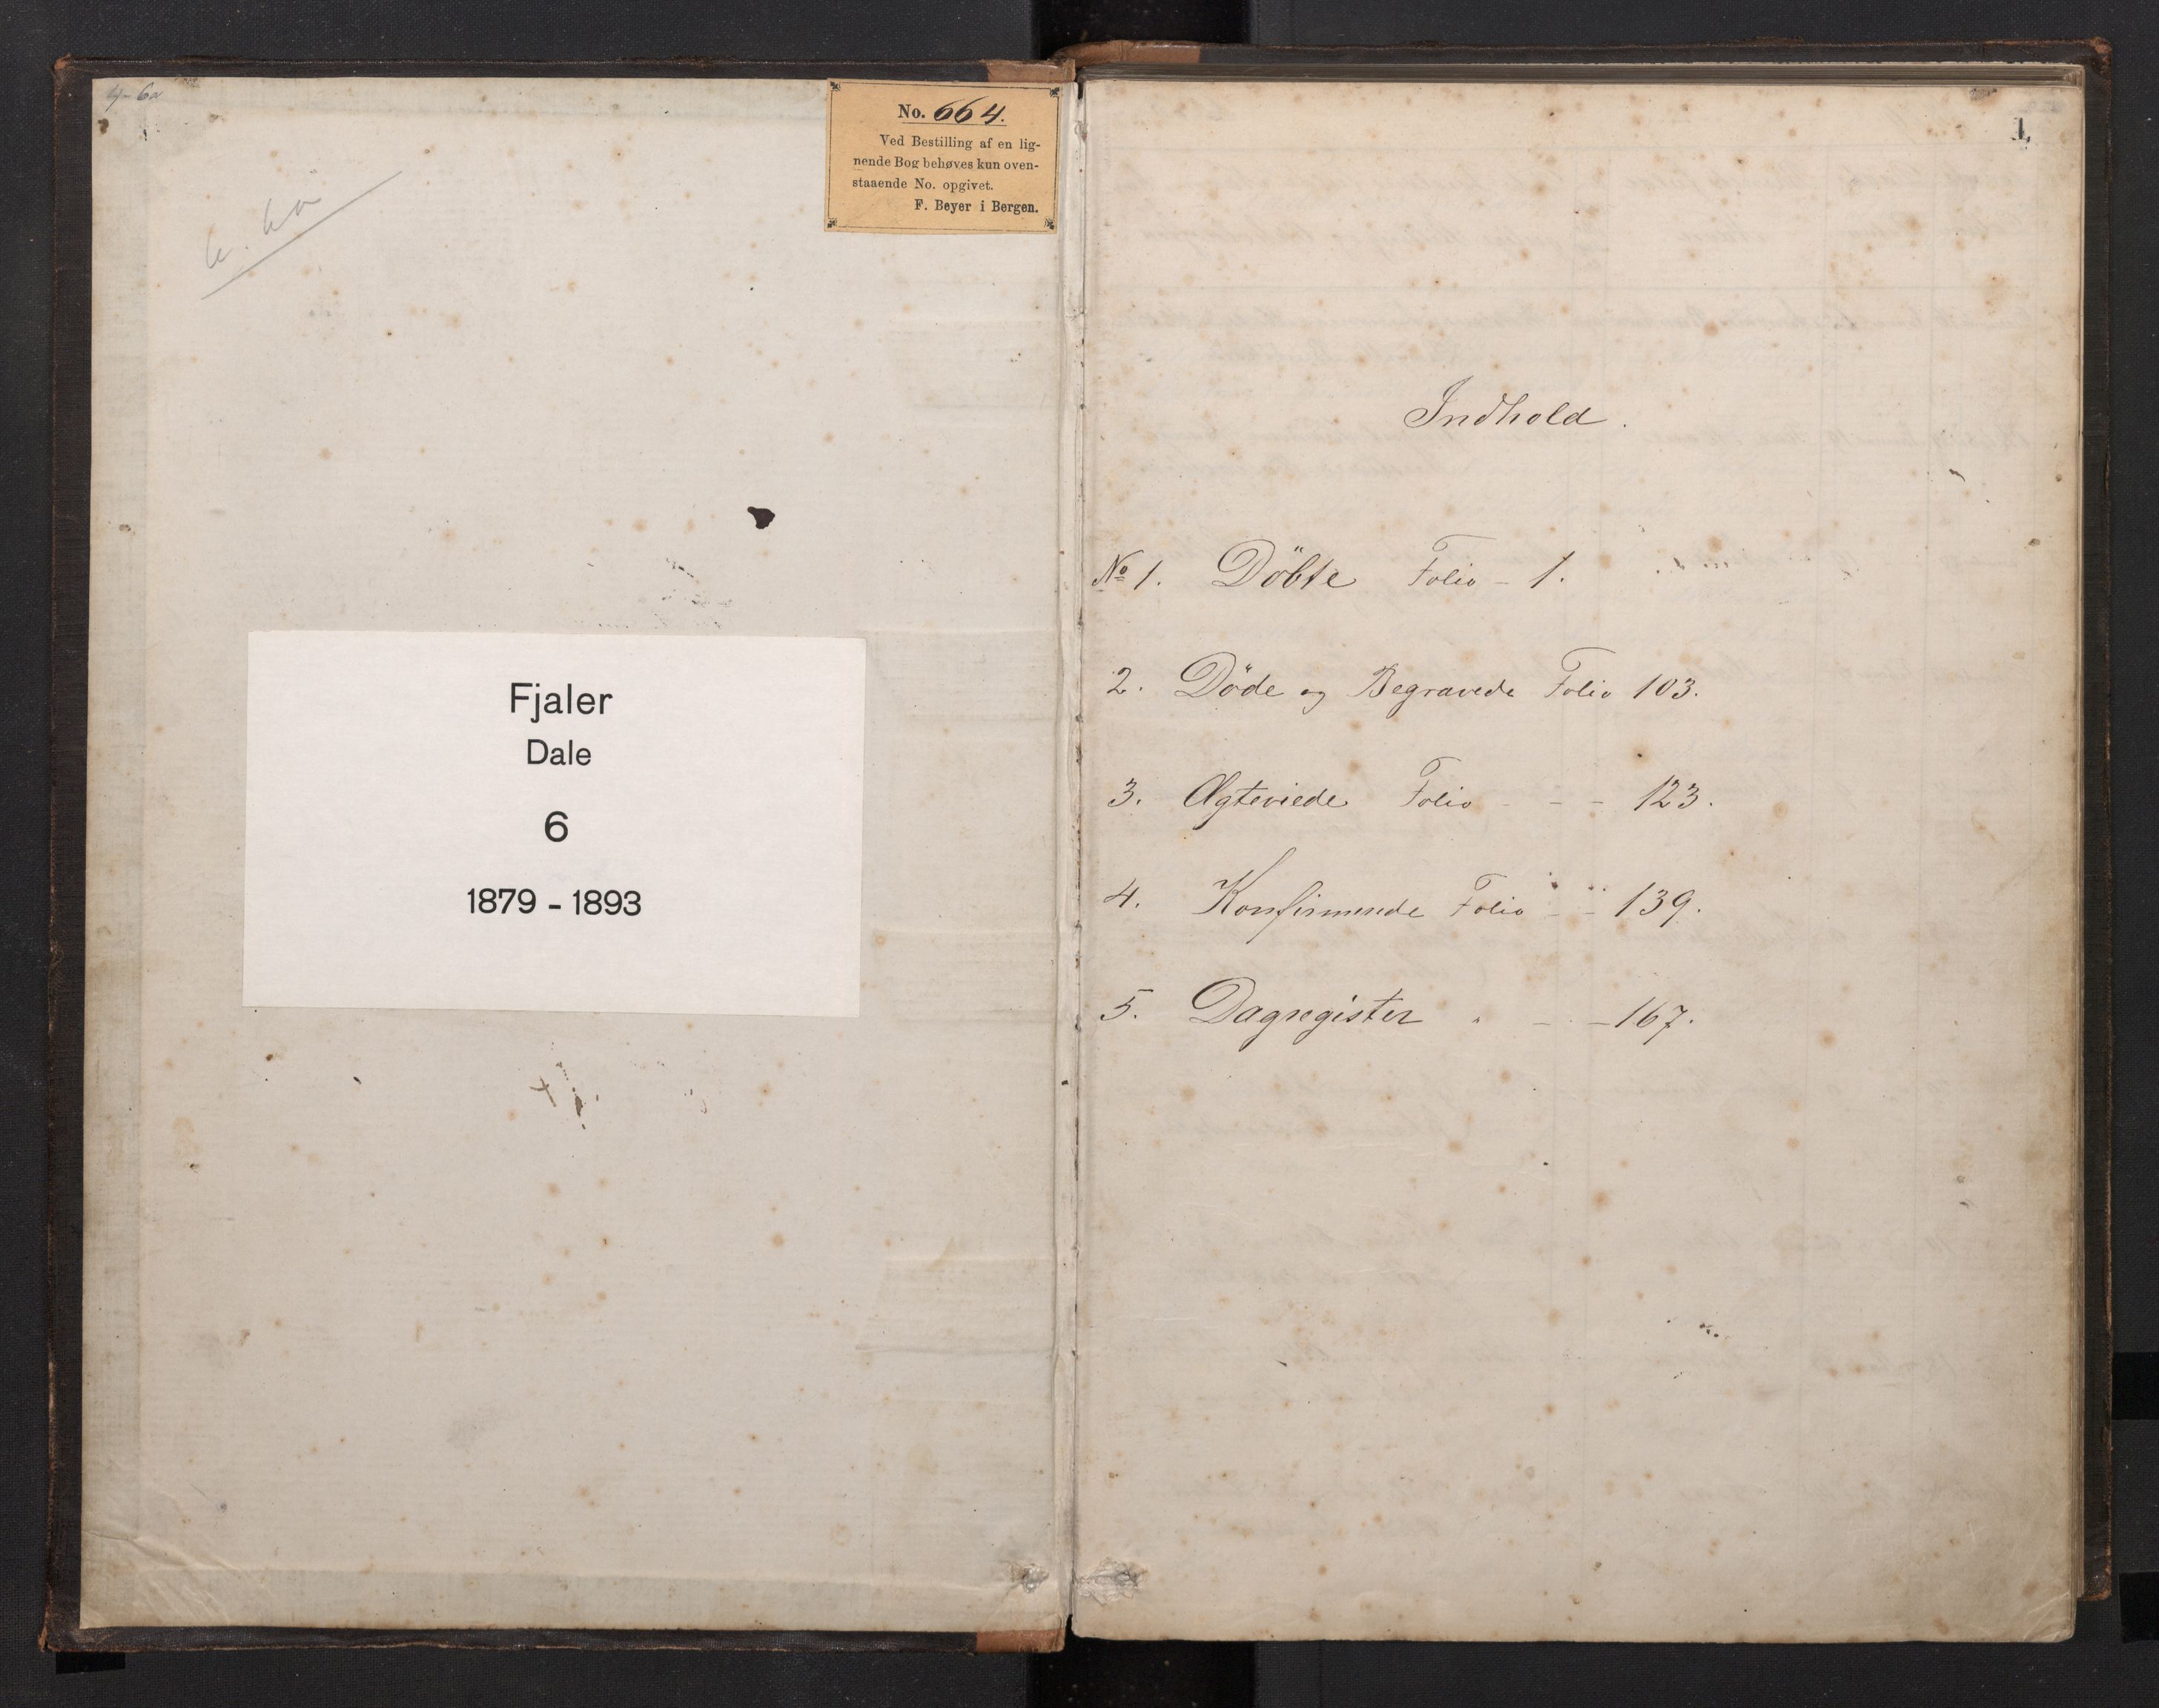 No. 664.
Ved Bestilling af en lig-
nende Bog behøves kun oven-
staaende No. opgivet.
F. Beyer i Bergen.
Fjaler
Dale
6
1879 - 1893
1,
Indhold.
No 1. Döbte Folio - 1.
2. Döde og Begravede Folio 103.
3. Ægteviede Folio - - - 123.
4. Konfirmerede Folio - - 139.
5. Dagregister " - - 167.